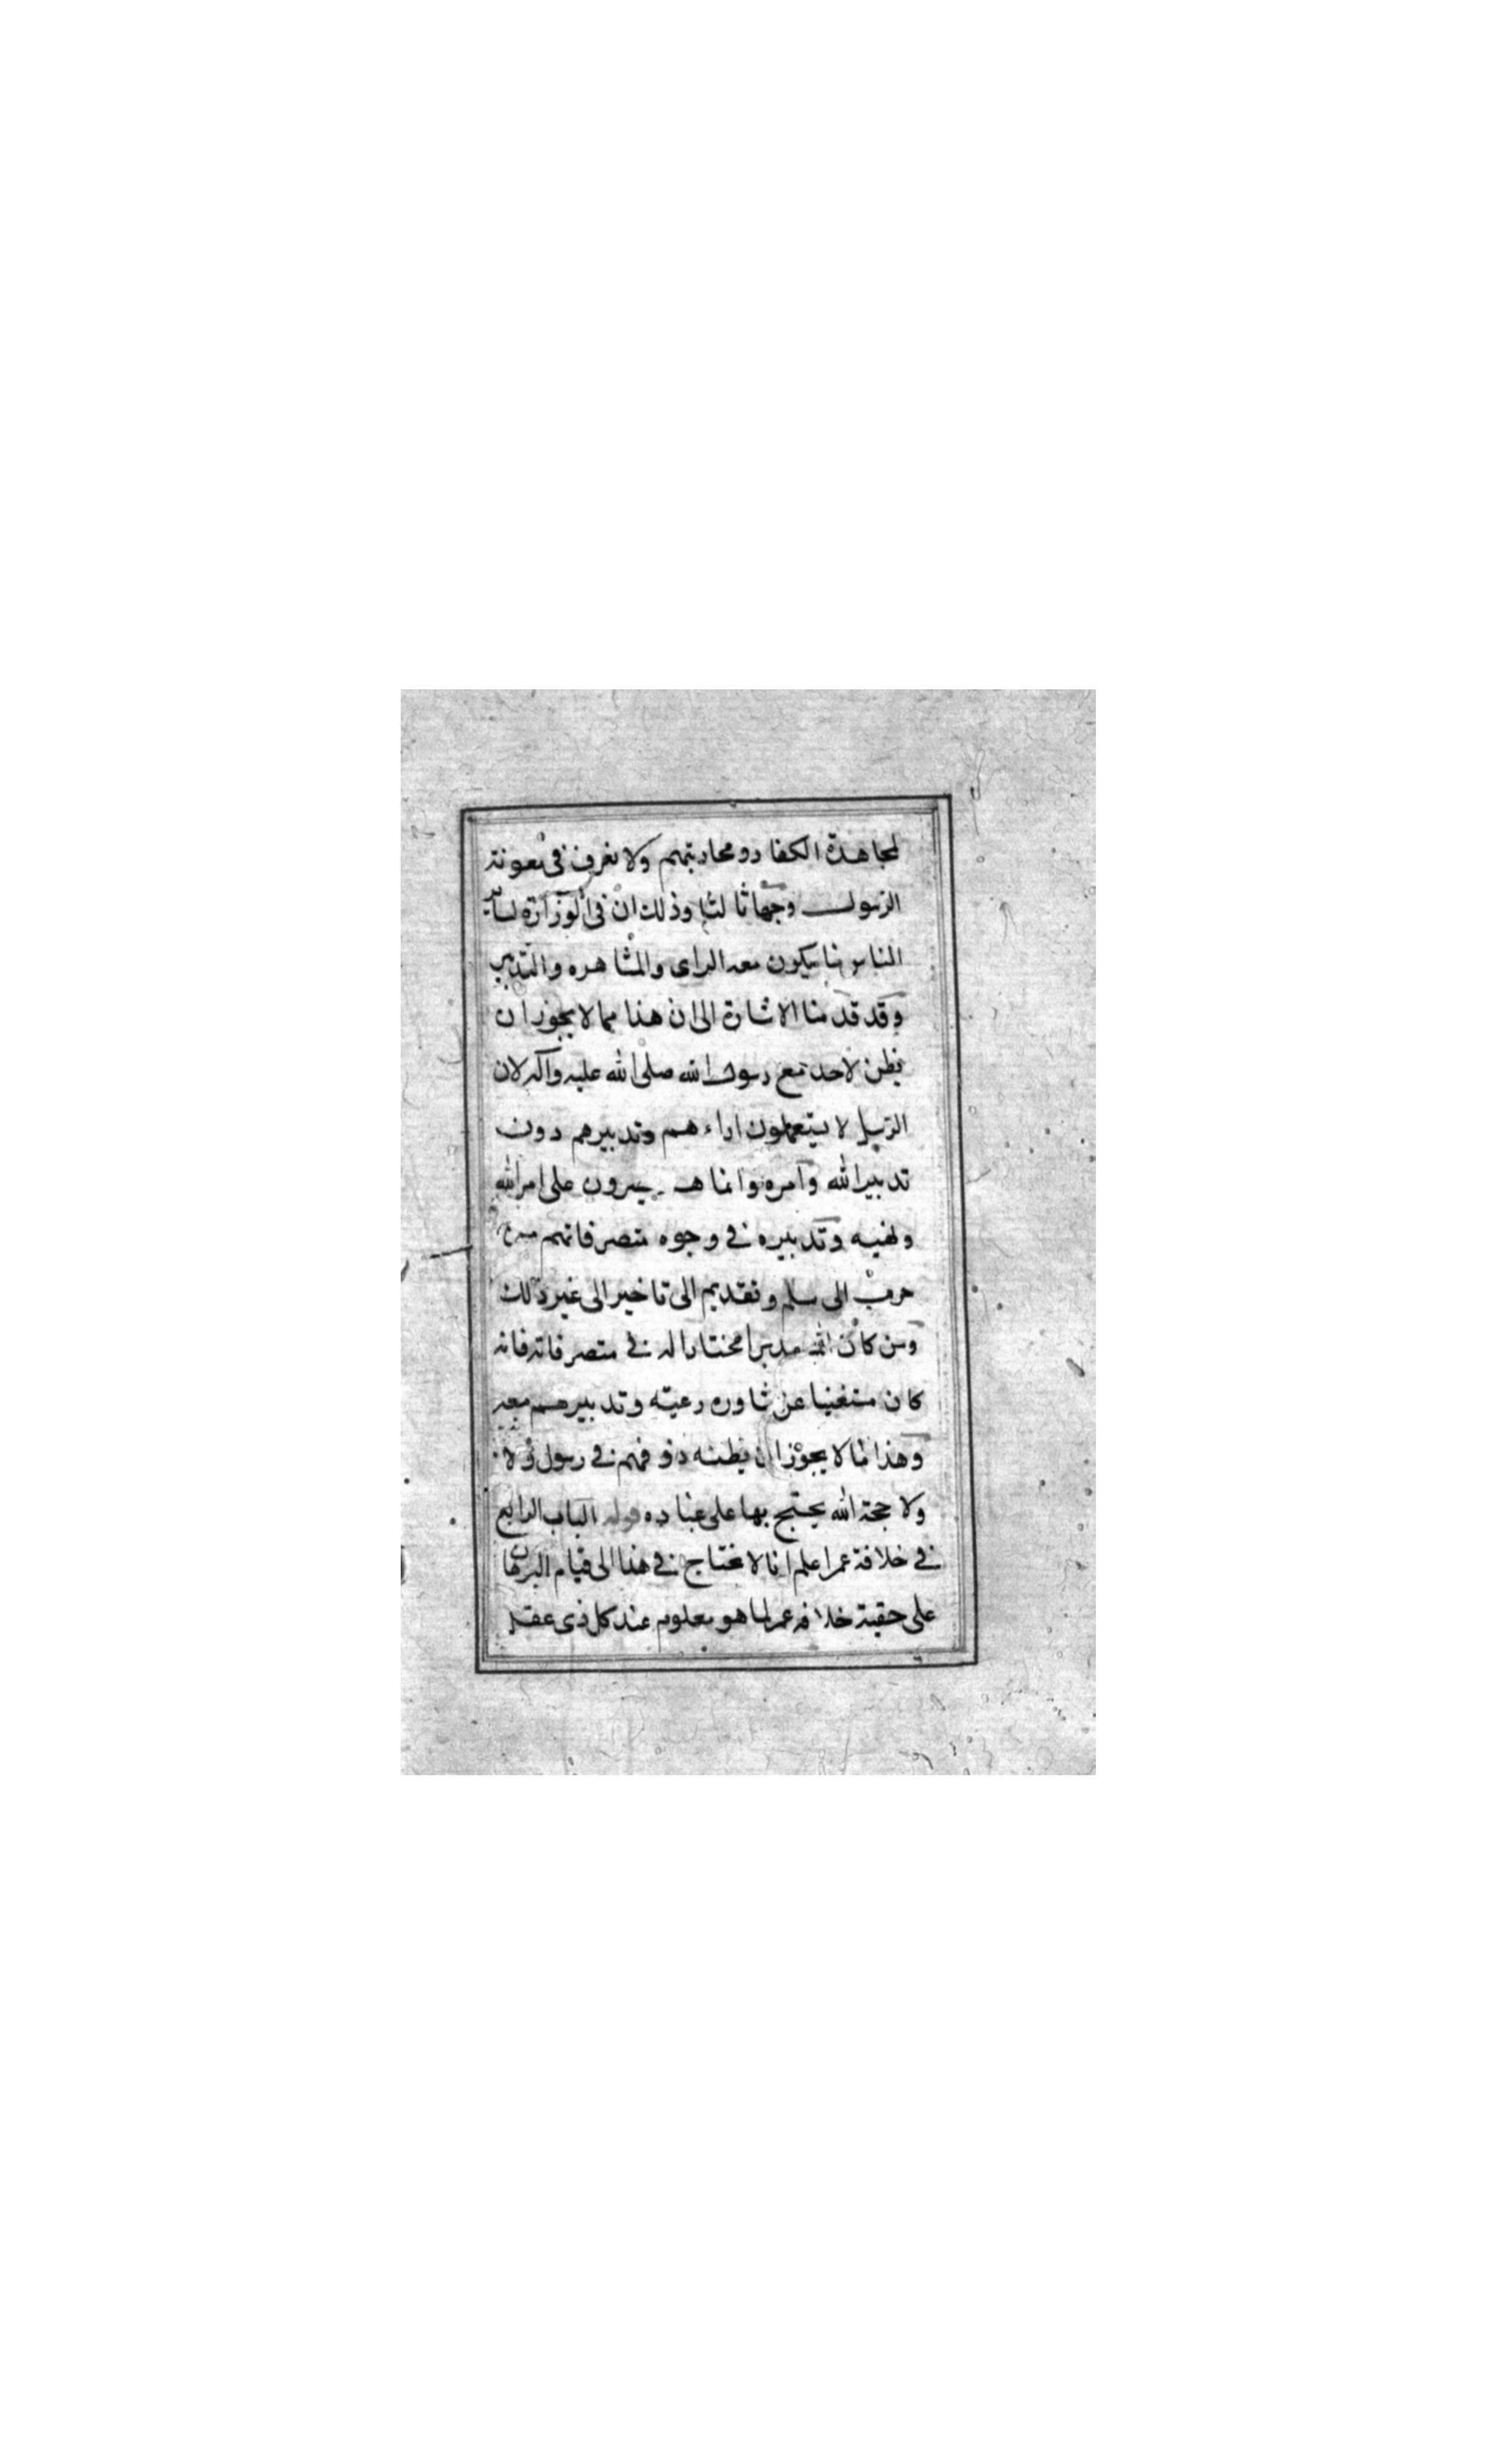 لمجاهدة الكفار ومحاربتهم ولا نعرف في معونة
الرسول وجها ثالثا وذلك ان في الوزارة لساير
الناس بنا يكون معه الراى والمشاهره والتدبير
وقد قدمنا الاشارة الى ان هذا مما لا يجوز ان
يظن لاحد مع رسول الله صلى الله عليه وآله لان
الرسل لا يستعملون اراءهم وتدبيرهم دون
تدبير الله وامره وانما هم يسيرون على امر الله
ونهيه وتدبيره في وجوه متصرفاتهم من
حرب الى سلم وتقديم الى تاخير الى غير ذلك
ومن كان الله مدبرا مختارا له في متصرفاته فانه
كان مستغنيا عن شاوره رعيته وتدبيرهم معه
وهذا مما لا يجوز ان يظنه ذو فهم في رسول ولا
ولا حجة الله يحتج بها على عباده قوله الباب الرابع
في خلافة عمر اعلم انا لا نحتاج في هذا الى قيام البرهان
على حقية خلافة عمر لما هو معلوم عند كل ذى عقل